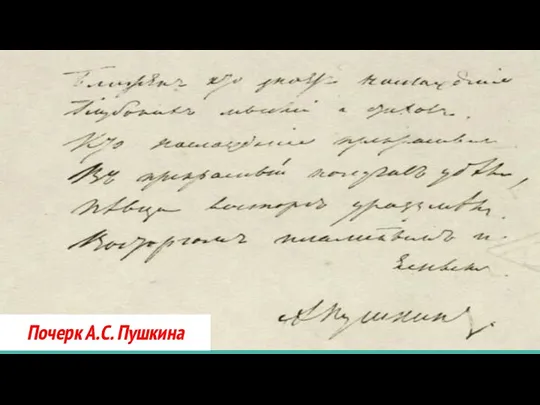 Блаженъ кто знаетъ наслажденіе
Глубокихъ мыслей и стиховъ,
Кто наслажденіе прекраснымъ
Въ прекрасный получилъ удѣлъ,
Пѣвца восторгъ уразумѣлъ
Восторгомъ пламеннымъ и
яснымъ.
А Пушкинъ.
Почерк А.С. Пушкина